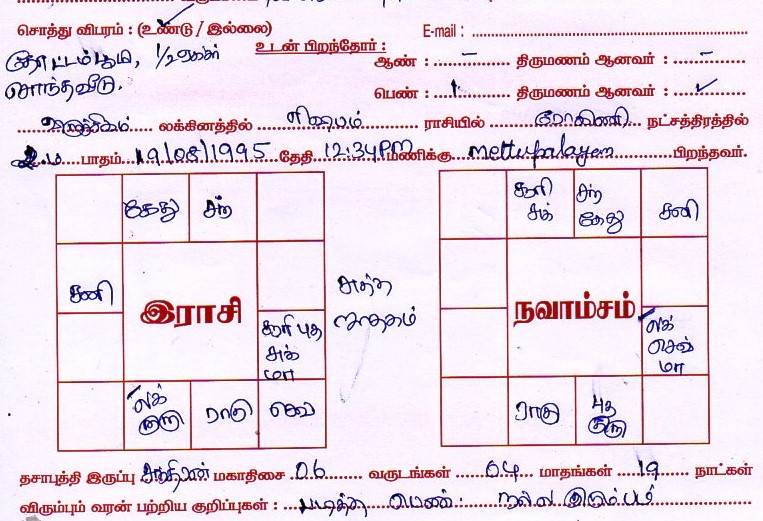 சொத்து விபரம் : (உண்டு / இல்லை) E-mail :
தோட்டம்பூமி, 1/2 ஏக்கர் உடன் பிறந்தோர் :
சொந்தவீடு. ஆண் : – திருமணம் ஆனவர் : –
பெண் : 1 திருமணம் ஆனவர் : ✓
விருச்சிகம் லக்கினத்தில் ரிஷபம் ராசியில் ரோகிணி நட்சத்திரத்தில்
2.ம் பாதம் 19/08/1995 தேதி 12:34PM மணிக்கு Mettupalayam பிறந்தவர்.
கேது சந்
சனி
இராசி
சூரி புத
சுக்
மா
லக்
குரு
ராகு
செவ்
சுத்த
ஜாதகம்
சூரி
சுக்
சந்
கேது
சனி
நவாம்சம்
லக்
செவ்
மா
ராகு
புத
குரு
தசாபுத்தி இருப்பு சந்திரன் மகாதிசை 06 வருடங்கள் 04 மாதங்கள் 19 நாட்கள்
விரும்பும் வரன் பற்றிய குறிப்புகள் : படித்த பெண். நல்ல குடும்பம்